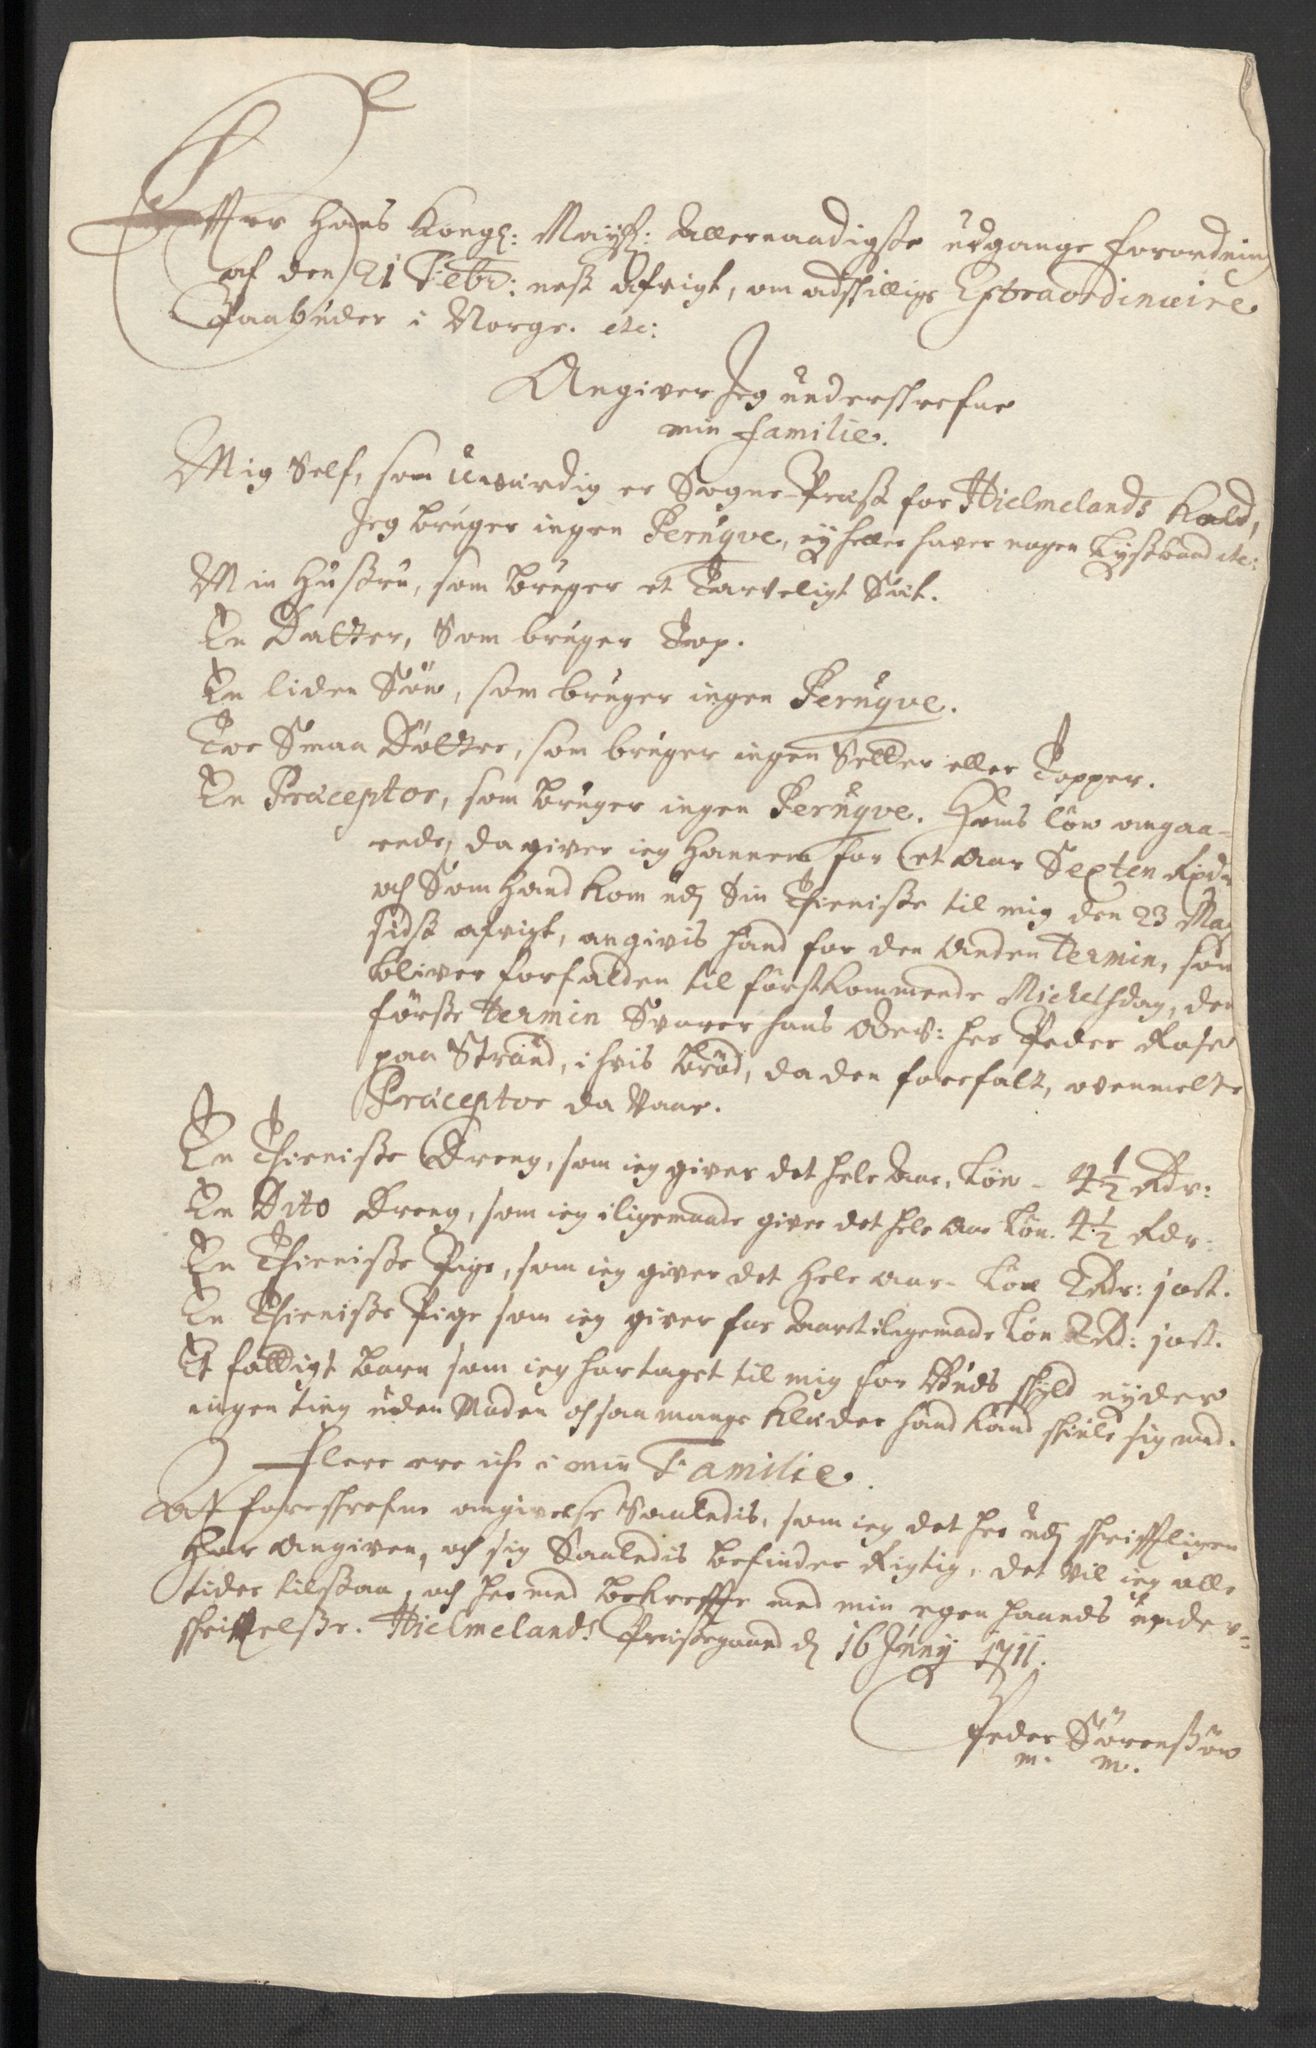 Effter Hans Kongl: Mayst: Allernaadigste udgange Forordning
af den 21 Febr: nest afvigt, om adskillige Extraordinaire
Paabuder i Norge. etc:
Angiver Jeg underskrefne
min Familie.
Mig Self, som uwurdig er Sogne-Præst for Hielmelands Kald,
Jeg bruger ingen Peruqve, ey heller haver nogen Lystvaad etc:
Min Hustru, som bruger et Tarveligt Sæt.
En Datter, Som bruger Top.
En liden Søn, som bruger ingen Peruqve.
Toe Smaa Døttre, som bruger ingen Setter eller Topper.
En Præceptor, som bruger ingen Peruqve. Hans løn angaa-
ende, da giver ieg hannem for et Aar Sexten Rixdr
och Som hand kom udj Sin Thieniste til mig den 23 Maj
sidst afvigt, angivis hand for den Anden Termin, som
bliver forfalden til førstkommende Michelsdag, den
første Termin Svarer hans Ober: her Peder Rose
paa Strand, i hvis brød, da den forefalt, ovenmelte
Præceptor da Vaar.
En Thieniste Dreng, som ieg giver det hele Aar, Løn - 4½ Rdr:
En Dito Dreng, som ieg iligemaade giver det hele Aar Løn. 4½ Rdr:
En Thieniste Pige, som ieg giver det hele Aar - Løn 2 Rdr: 1 ort.
En Thieniste Pige som ieg giver for Aaret iligemade Løn 2 Rd: 1 ort.
Et fattigt barn som ieg har taget til mig for Guds skyld nyder
ingen ting uden Maden och saa mange Klæder hand kand skiule sig med.
Flere ere iche i min Familie.
At foreskrefne angivelse Saaledis, som ieg det her udj skrifftligen
har angiven, och sig Saaledis befinder Rigtig, det vil ieg alle
tider tilstaa, och hermed bekreffte med min egen haands under-
skrivelse. Hielmelands Præstegaard d 16 Junij 1711.
Peder Sörensøn
m. m.